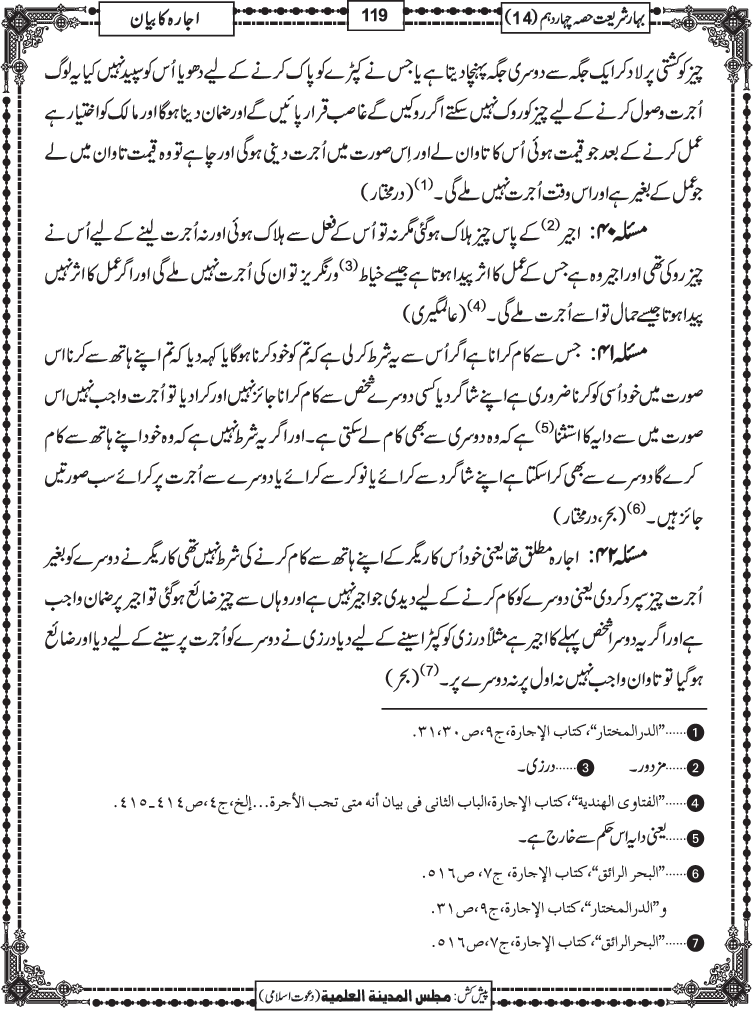 بہار شریعت حصہ چہاردہم (14)
119
اجارہ کا بیان
چیز کو کشتی پر لاد کر ایک جگہ سے دوسری جگہ پہنچا دیتا ہے یا جس نے کپڑے کو پاک کرنے کے لیے دھویا اُس کو سپید نہیں کیا یہ لوگ
اُجرت وصول کرنے کے لیے چیز کو روک نہیں سکتے اگر روکیں گے غاصب قرار پائیں گے اور ضمان دینا ہوگا اور مالک کو اختیار ہے
عمل کرنے کے بعد جو قیمت ہوئی اُس کا تاوان لے اور اِس صورت میں اُجرت دینی ہوگی اور چاہے تو وہ قیمت تاوان میں لے
جو عمل کے بغیر ہے اور اس وقت اُجرت نہیں ملے گی۔(1) (درمختار)
مسئلہ ۴۰: اجیر(2) کے پاس چیز ہلاک ہوگئی مگر نہ تو اُس کے فعل سے ہلاک ہوئی اور نہ اُجرت لینے کے لیے اُس نے
چیز روکی تھی اور اجیر وہ ہے جس کے عمل کا اثر پیدا ہوتا ہے جیسے خیاط(3) و رنگریز تو ان کی اُجرت نہیں ملے گی اور اگر عمل کا اثر نہیں
پیدا ہوتا جیسے حمال تو اسے اُجرت ملے گی۔(4) (عالمگیری)
مسئلہ ۴۱: جس سے کام کرانا ہے اگر اُس سے یہ شرط کرلی ہے کہ تم کو خود کرنا ہوگا یا کہہ دیا کہ تم اپنے ہاتھ سے کرنا اس
صورت میں خود اُسی کو کرنا ضروری ہے اپنے شاگرد یا کسی دوسرے شخص سے کام کرانا جائز نہیں اور کرا دیا تو اُجرت واجب نہیں اس
صورت میں سے دایہ کا استثنا(5) ہے کہ وہ دوسری سے بھی کام لے سکتی ہے۔ اور اگر یہ شرط نہیں ہے کہ وہ خود اپنے ہاتھ سے کام
کرے گا دوسرے سے بھی کرا سکتا ہے اپنے شاگرد سے کرائے یا نوکر سے کرائے یا دوسرے سے اُجرت پر کرائے سب صورتیں
جائز ہیں۔(6) (بحر، درمختار)
مسئلہ ۴۲: اجارہ مطلق تھا یعنی خود اُس کاریگر کے اپنے ہاتھ سے کام کرنے کی شرط نہیں تھی کاریگر نے دوسرے کو بغیر
اُجرت چیز سپرد کردی یعنی دوسرے کو کام کرنے کے لیے دیدی جو اجیر نہیں ہے اور وہاں سے چیز ضائع ہوگئی تو اجیر پر ضمان واجب
ہے اور اگر یہ دوسرا شخص پہلے کا اجیر ہے مثلاً درزی کو کپڑا سینے کے لیے دیا درزی نے دوسرے کو اُجرت پر سینے کے لیے دیا اور ضائع
ہوگیا تو تاوان واجب نہیں نہ اول پر نہ دوسرے پر۔(7) (بحر)
1......"الدرالمختار"، کتاب الإجارة، ج٩، ص٣١،٣٠.
2......مزدور۔ 3......درزی۔
4......"الفتاوی الهندیة"، کتاب الإجارة، الباب الثانی فی بیان أنه متی تجب الأجرة...إلخ، ج٤، ص٤١٤-٤١٥.
5......یعنی دایہ اس حکم سے خارج ہے۔
6......"البحر الرائق"، کتاب الإجارة، ج٧، ص٥١٦.
و"الدرالمختار"، کتاب الإجارة، ج٩، ص٣١.
7......"البحرالرائق"، کتاب الإجارة، ج٧، ص٥١٦.
پیش کش: مجلس المدینة العلمیة (دعوت اسلامی)